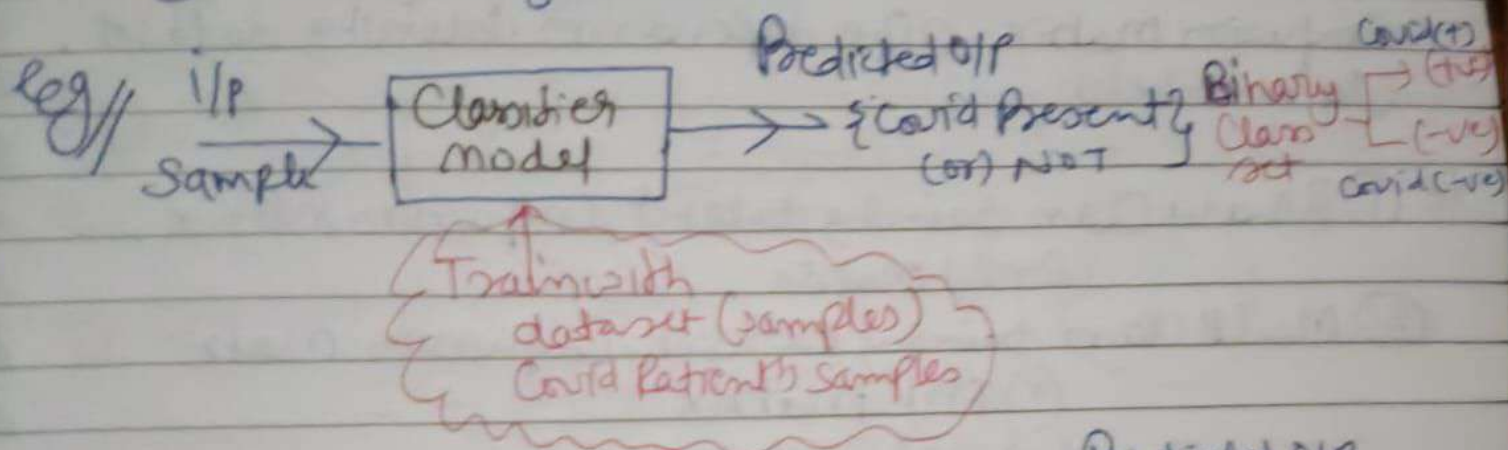 eg//
i/p
Sample
Classifier
model
Predicted O/P
{Covid Present}
(or) NOT
Binary
Class
set
Covid(+)
(+ve)
(-ve)
Covid(-ve)
Train with
dataset (samples)
Covid Patient's samples